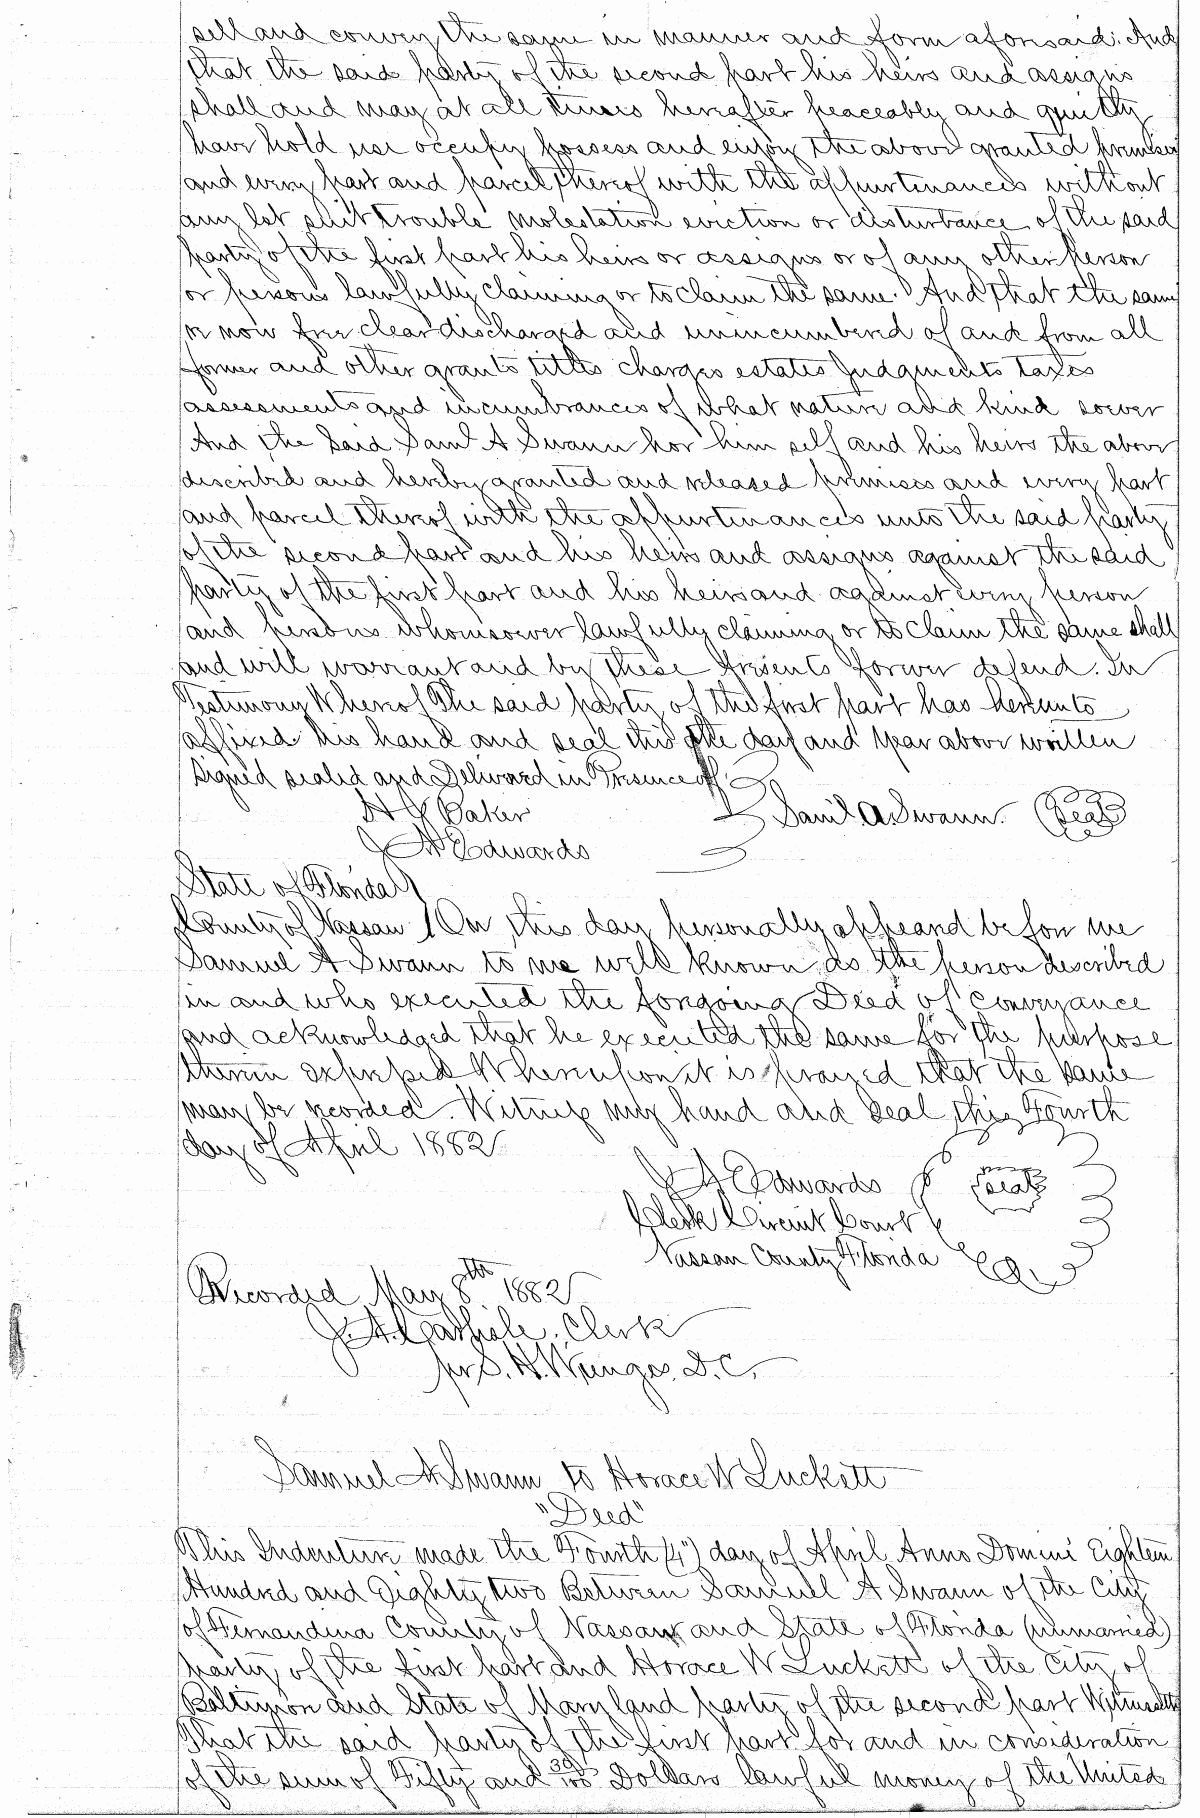 sell and convey the same in manner and form aforesaid. And
that the said party of the second part his heirs and assigns
shall and may at all times hereafter peaceably and quietly
have hold use occupy possess and enjoy the above granted premises
and every part and parcel thereof with the appurtenances without
any let suit trouble molestation eviction or disturbance of the said
party of the first part his heirs or assigns or of any other person
or persons lawfully claiming or to claim the same. And that the same
is now free clear discharged and unincumbered of and from all
former and other grants titles charges estates Judgments taxes
assessments and incumbrances of what nature and kind soever
And the Said Saml A Swann for him self and his heirs the above
described and hereby granted and released premises and every part
and parcel thereof with the appurtenances unto the said party
of the second part and his heirs and assigns against the said
party of the first part and his heirs and against every person
and persons whomsoever lawfully claiming or to claim the same shall
and will warrant and by these presents forever defend. In
Testimony Whereof The said party of the first part has hereunto
affixed his hand and seal this the day and year above written
Signed sealed and Delivered in Presence of
H J Baker
Saml. A. Swann. Seal
J A Edwards
State of Florida
County of Nassau } On this day personally appeared before me
Samuel A Swann to me well known as the person described
in and who executed the foregoing Deed of Conveyance
and acknowledged that he executed the same for the purpose
therein expressed Whereupon it is prayed that the same
may be recorded. Witness my hand and seal this Fourth
day of April 1882
J A Edwards Seal
Clerk Circuit Court
Nassau County Florida
Recorded May 8th 1882
J. A. Carlisle, Clerk
pr S. H. D.C.
Samuel A Swann to Horace W Luckett
"Deed"
This Indenture made the Fourth (4") day of April Anno Domini Eighteen
Hundred and Eighty two Between Samuel A Swann of the City
of Fernandina County of Nassau and State of Florida (unmarried)
party of the first part and Horace W Luckett of the City of
Baltimore and State of Maryland party of the second part Witnesseth
That the said party of the first part for and in consideration
of the sum of Fifty and 39/100 Dollars lawful money of the United